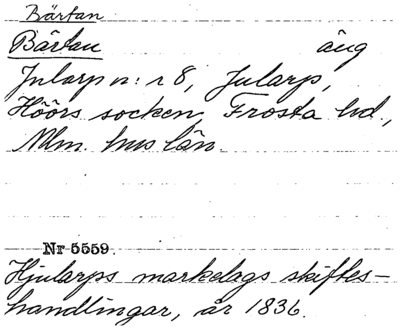 Bärtan
Bärtan äng
Jularp n:r 8, Jularp,
Höörs socken, Frosta hd.,
Mlm. hus län
Nr 5559.
Hjularps markelags skiftes-
handlingar, år 1836.